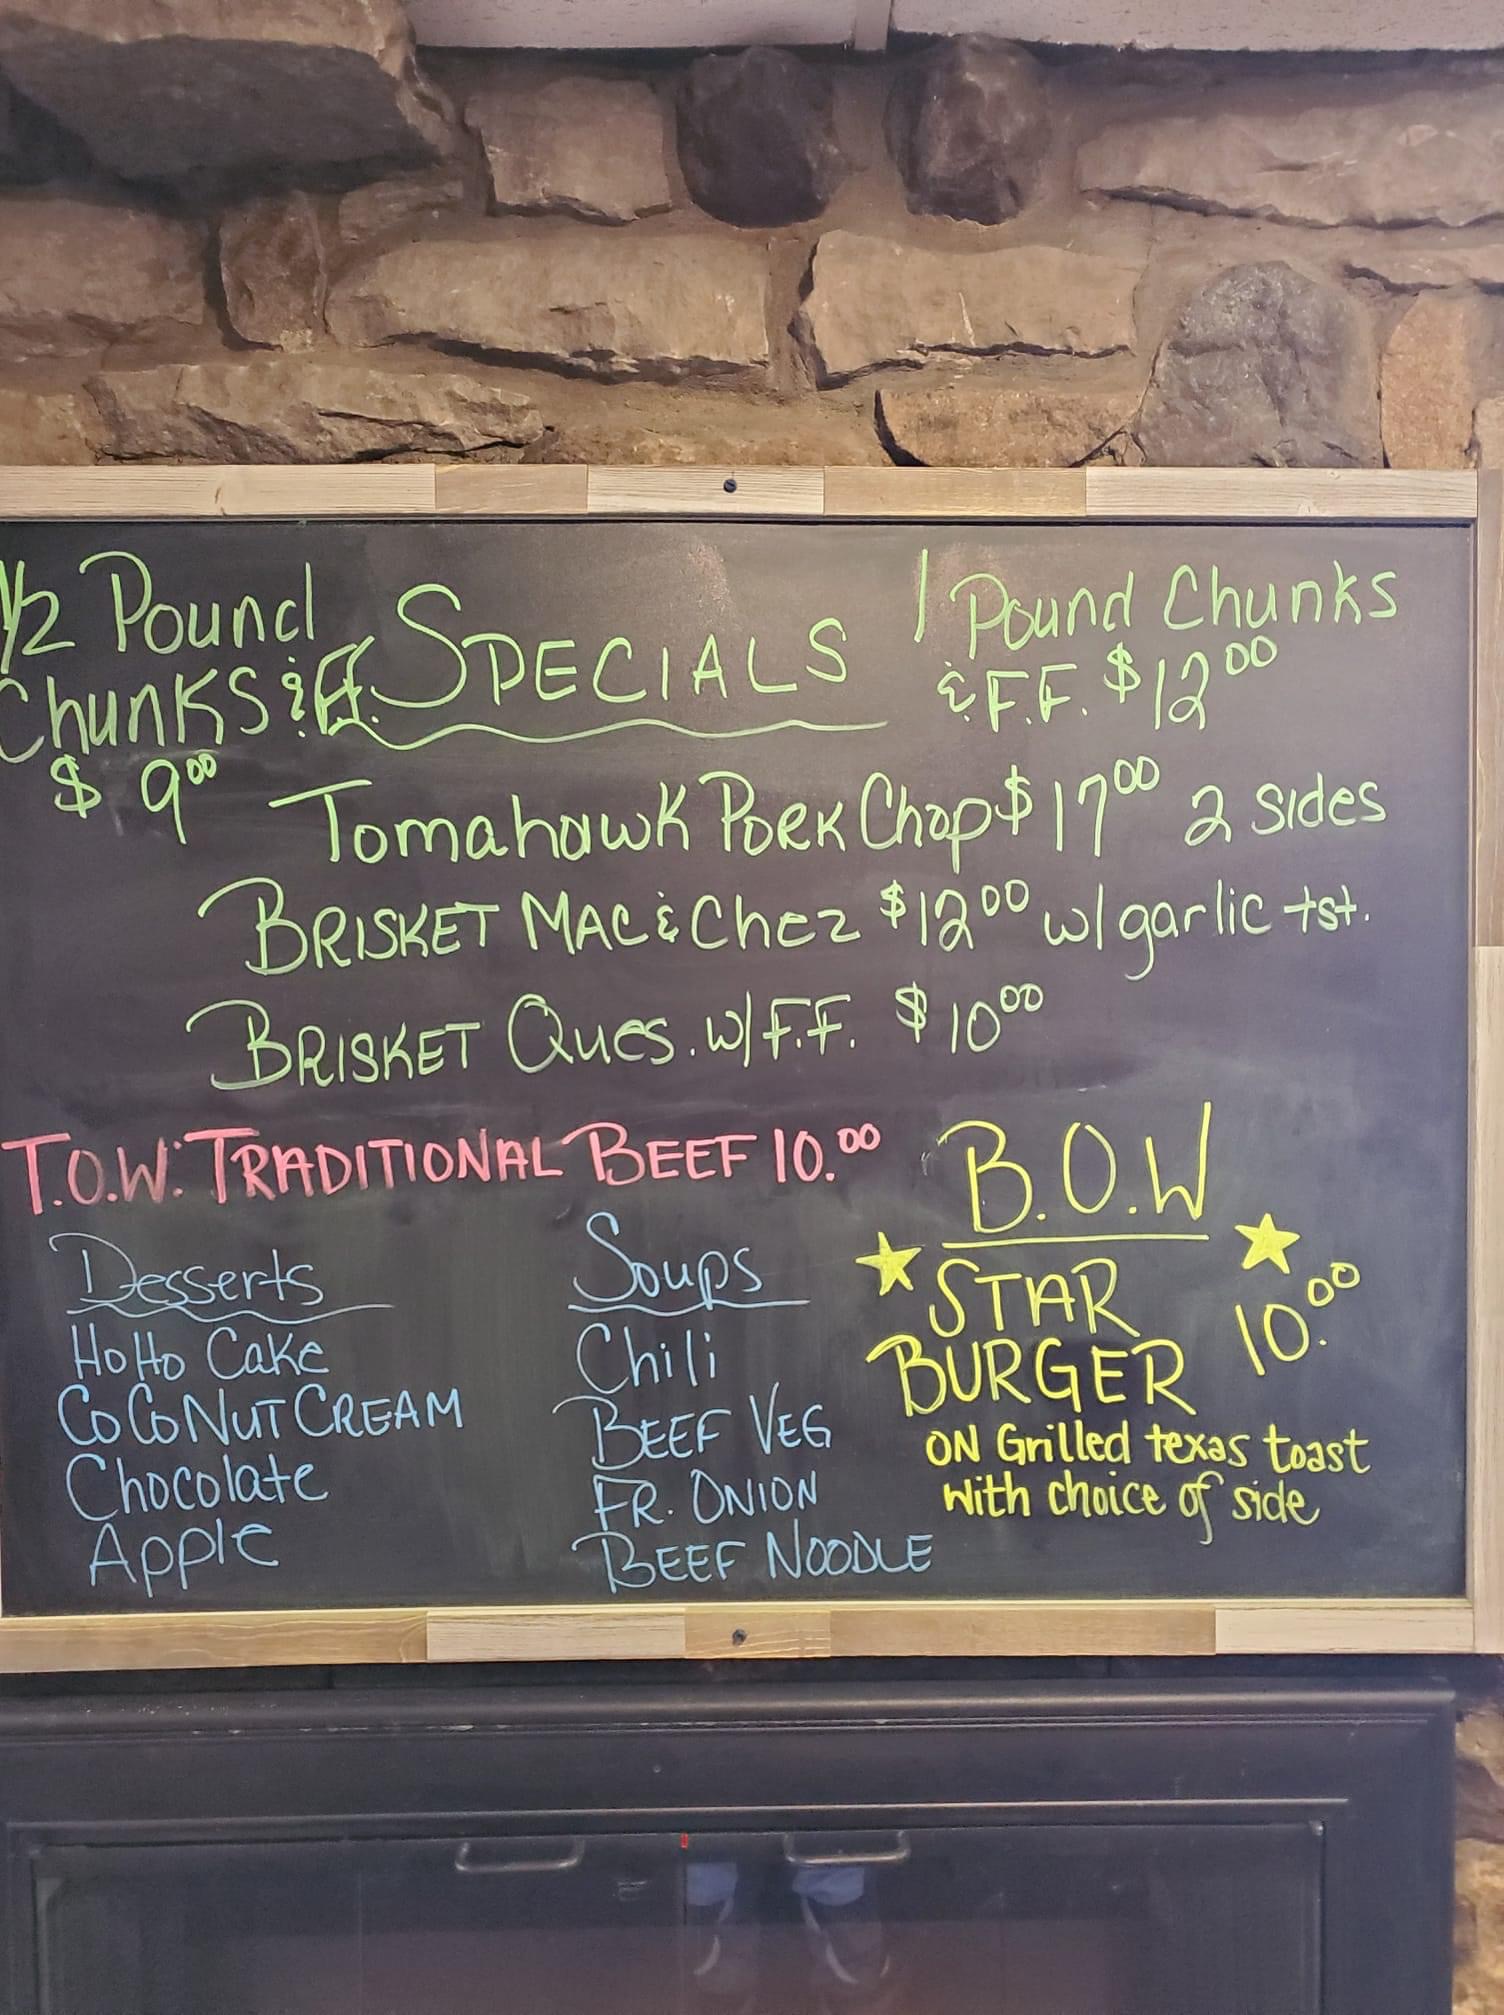 1/2 Pound
Chunks & F.F.
$9.00
SPECIALS
1 Pound Chunks
& F.F. $12.00
Tomahawk Pork Chop $17.00 2 sides
BRISKET MAC & Chez $12.00 w/ garlic tst.
BRISKET Ques. w/ F.F. $10.00
T.O.W: TRADITIONAL BEEF 10.00
Desserts
HoHo Cake
COCONUT CREAM
Chocolate
Apple
Soups
Chili
BEEF VEG
FR. ONION
BEEF NOODLE
B.O.W
STAR
BURGER 10.00
ON Grilled texas toast
with choice of side